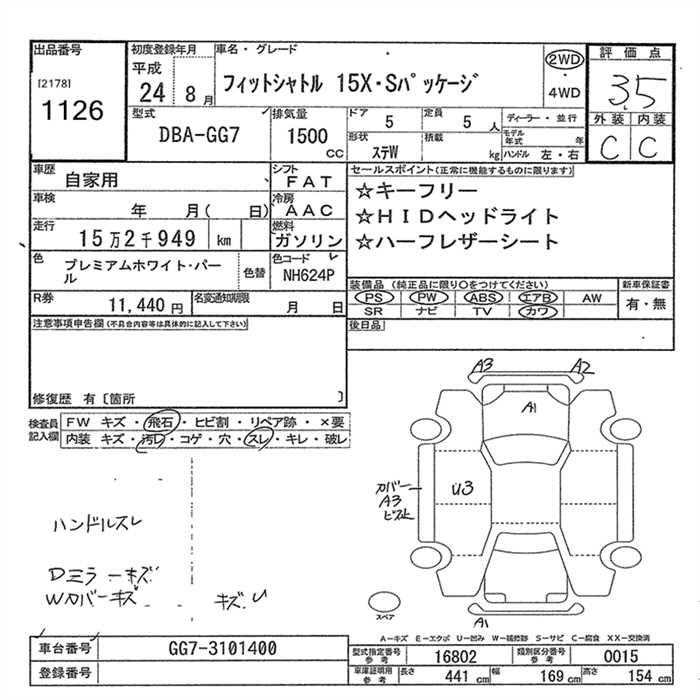 出品番号
[2178]
1126
初度登録年月
平成
24 8月
車名・グレード
フィットシャトル 15X・Sパッケージ
2WD
・
4WD
評価点
3.5
外装 内装
C C
型式
DBA-GG7
排気量
1500
CC
ドア
5
定員
5 人
形状
ステW
積載
kg
ディーラー・並行
モデル年式 年
ハンドル 左・右
車歴
自家用
シフト
FAT
車検
年 月( 日)
冷房
AAC
走行
15万2千949 km
燃料
ガソリン
色
プレミアムホワイト・パール
色替
色コード
NH624P
R券
11,440 円
名変通知期限
月 日
セールスポイント(正常に機能するものに限ります)
☆キーフリー
☆HIDヘッドライト
☆ハーフレザーシート
装備品 (純正品に限り○をつけてください)
PS PW ABS エアB AW
SR ナビ TV カワ
新車保証書
有・無
後日品
注意事項申告欄(不具合内容等は具体的に記入して下さい)
修復歴 有〔箇所 〕
検査員記入欄
FW キズ・飛石・ヒビ割・リペア跡・×要
内装 キズ・汚レ・コゲ・穴・スレ・キレ・破レ
ハンドルスレ
Dミラーキズ
Wカバーキズ キズ、U
A3 A2
A1
カバー
A3
ビス止
U3
スペア
A1
A―キズ E―エクボ U―凹み W―補修跡 S―サビ C―腐食 XX―交換済
車台番号
GG7-3101400
登録番号
型式指定番号
参考
16802
類別区分番号
参考
0015
車庫証明用
参考
長さ 441 cm
幅 169 cm
高さ 154 cm